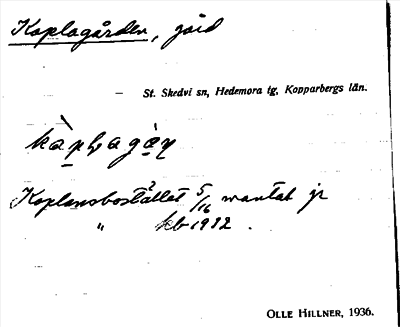 Koplagården, gård
– St. Skedvi sn, Hedemora tg, Kopparbergs län.
Koplansbostället 5/16 mantal jr
" kb 1912.
OLLE HILLNER, 1936.